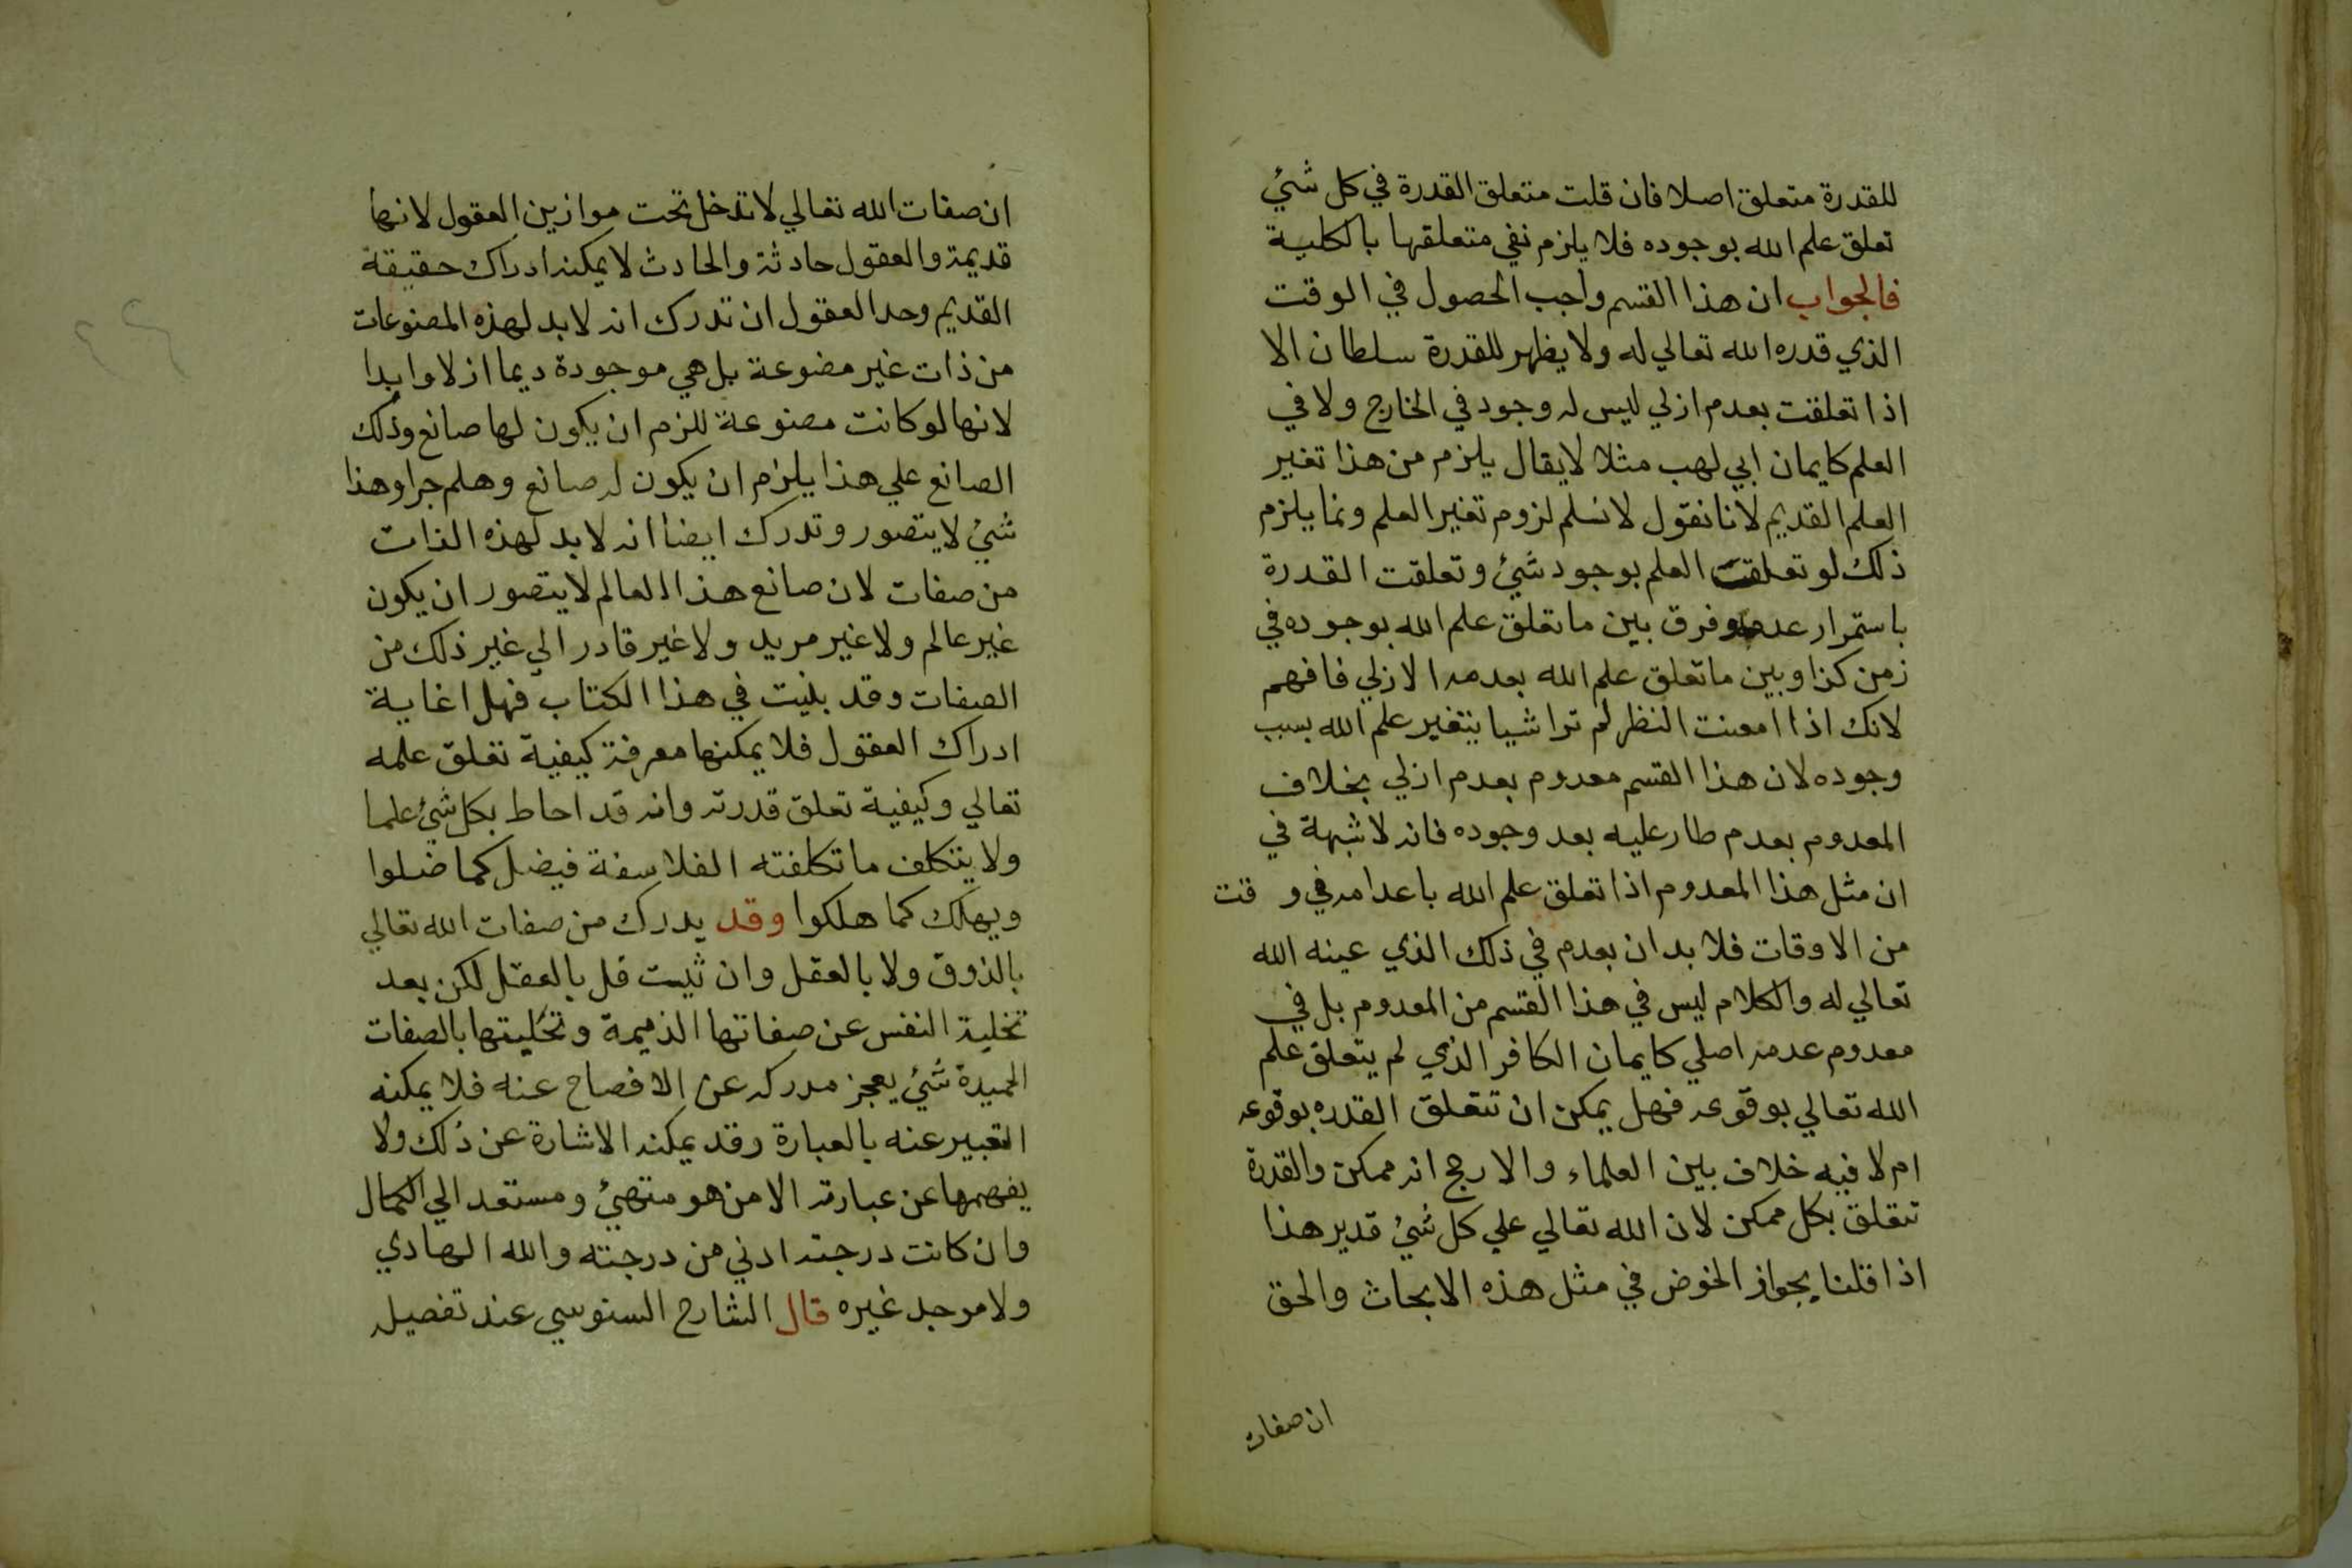 للقدرة متعلق اصلا فان قلت متعلق القدرة في كل شئ
تعلق علم الله بوجوده فلا يلزم نفي متعلقها بالكلية
فالجواب ان هذا القسم واجب الحصول في الوقت
الذي قدره الله تعالي له ولا يظهر للقدرة سلطان الا
اذا تعلقت بعدم ازلي ليس له وجود في الخارج ولا في
العلم كايمان ابي لهب مثلا لا يقال يلزم من هذا تغير
العلم القديم لانا نقول لا نسلم لزوم تغير العلم ونما يلزم
ذلك لو تعلقت العلم بوجود شئ وتعلقت القدرة
باستمرار عدمه وفرق بين ما تعلق علم الله بوجوده في
زمن كذا وبين ما تعلق علم الله بعدمه الازلي فافهم
لانك اذا امعنت النظر لم ترا شيا يتغير علم الله بسبب
وجوده لان هذا القسم معدوم بعدم ازلي بخلاف
المعدوم بعدم طار عليه بعد وجوده فانه لا شبهة في
ان مثل هذا المعدوم اذا تعلق علم الله باعدامه في وقت
من الاوقات فلا بد ان يعدم في ذلك الذي عينه الله
تعالي له والكلام ليس في هذا القسم من المعدوم بل في
معدوم عدمه اصلي كايمان الكافر الذي لم يتعلق علم
الله تعالي بوقوعه فهل يمكن ان تتعلق القدره بوقوعه
ام لا فيه خلاف بين العلماء والارجح انه ممكن والقدرة
تتعلق بكل ممكن لان الله تعالي علي كل شئ قدير هذا
اذا قلنا بجواز الخوض في مثل هذه الابحاث والحق
ان صفات
ان صفات الله تعالي لا تدخل تحت موازين العقول لانها
قديمة والعقول حادثة والحادث لا يمكنه ادراك حقيقة
القديم وحد العقول ان تدرك انه لا بد لهذه المصنوعات
من ذات غير مصنوعة بل هي موجودة ديما ازلا وابدا
لانها لو كانت مصنوعة للزم ان يكون لها صانع وذلك
الصانع علي هذا يلزم ان يكون له صانع وهلم جرا وهذا
شئ لا يتصور وتدرك ايضا انه لا بد لهذه الذات
من صفات لان صانع هذا العالم لا يتصور ان يكون
غير عالم ولا غير مريد ولا غير قادر الي غير ذلك من
الصفات وقد بينت في هذا الكتاب فهل اغاية
ادراك العقول فلا يمكنها معرفة كيفية تعلق علمه
تعالي وكيفية تعلق قدرته وانه قد احاط بكل شئ علما
ولا يتكلف ما تكلفته الفلاسفة فيضل كما ضلوا
ويهلك كما هلكوا وقد يدرك من صفات الله تعالي
بالذوق ولا بالعقل وان ثبت قل بالعقل لكن بعد
تخلية النفس عن صفاتها الذميمة وتحليتها بالصفات
الحميدة شئ يعجز مدركه عن الافصاح عنه فلا يمكنه
التعبير عنه بالعبارة وقد يمكنه الاشارة عن ذلك ولا
يفهمها عن عبارته الا من هو متهئ ومستعد الي الكمال
وان كانت درجته ادني من درجته والله الهادي
ولا مرجل غيره قال الشارح السنوسي عند تفصيله